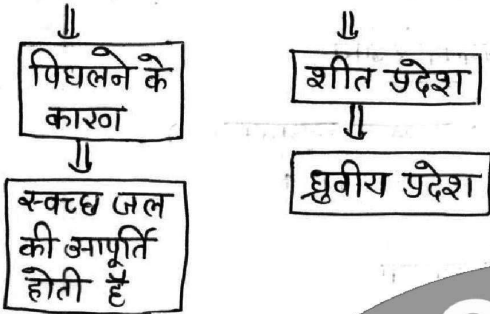 पिघलने के
कारण
स्वच्छ जल
की आपूर्ति
होती है
शीत प्रदेश
ध्रुवीय प्रदेश